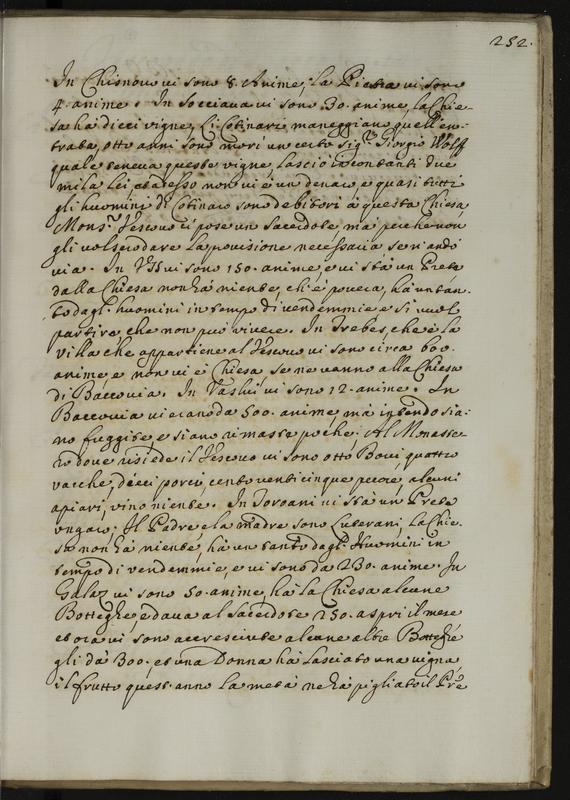 252.
In Chisnoua ui sono 8. Anime, la Piatra ui sono
4. anime. In Socciaua ui sono 30. anime, la Chie-
sa hà dieci vigne, li Cotinari maneggiano quell'en-
trata, otto anni sono morì un certo Sig.r Giorgio Wolff
quale teneua queste vigne, lasciò in contanti due
mila lei, adesso non ui è un denaro, e quasi tutti
gli huomini di Cotinaro sono debitori à questa Chiesa
Mons.r Vescouo ci pose un Sacerdote, mà perche non
gli uolse dare la prouisione necessaria se n'andò
via. In Vssi ui sono 150. anime, e ui stà un Prete
dalla Chiesa non hà niente, ch'è pouera, hà un tan-
to dagl' huomini in tempo di vendemmie, e si vuol
partire, che non può viuere. In Trebes, che è la
Villa che appartiene al Vescouo ui sono circa 600.
anime, e non ui è Chiesa, se ne vanno alla Chiesa
di Baccouia. In Vaslui ui sono 12. anime. In
Baccouia ui erano da 500. anime, mà intendo sia-
no fuggite, e siano rimaste poche. Al Monaste-
ro doue risiede il Vescouo ui sono otto Boui, quattro
vacche, dieci porci, cento venticinque pecore, alcuni
apiari, vino niente. In Toroani ui stà un Prete
ungaro, Il Padre, e la madre sono Luterani, la Chie-
sa non hà niente, hà un tanto dagl' Huomini in
tempo di vendemmie, e ui sono da 230. anime. In
Galaz ui sono 50. anime, hà la Chiesa alcune
Botteghe, e daua al Sacerdote 250. aspri il mese
et ora ui sono accresciute alcune altre Botteghe
gli dà 300. et una Donna hà lasciato una vigna
il frutto quest'anno la metà ne hà pigliato il Pre